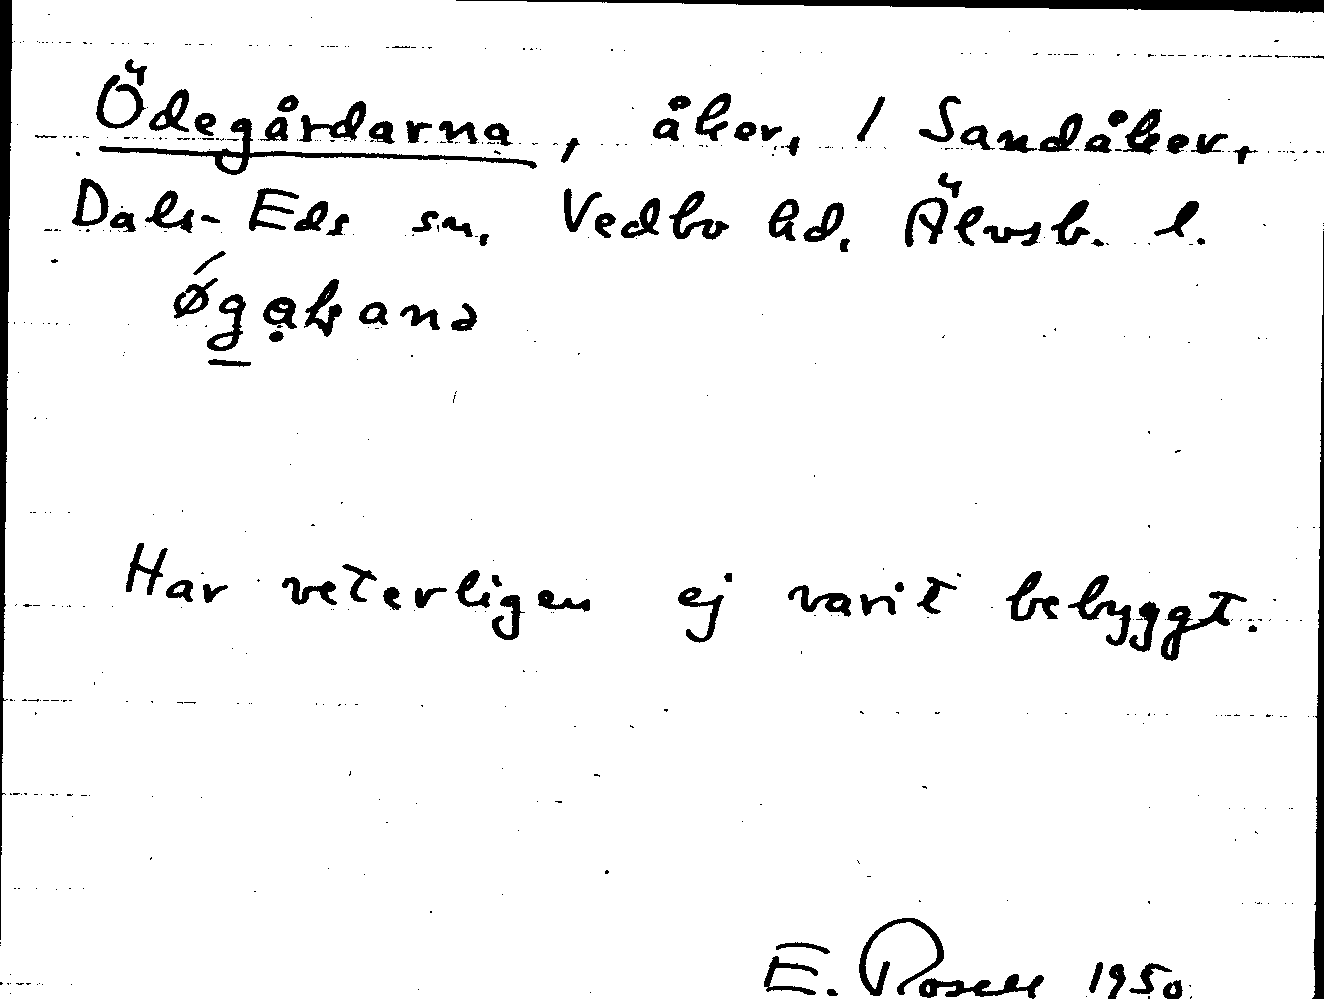 Ödegårdarna, åker, / Sandåker,
Dals-Eds sn, Vedbo hd, Älvsb. l.
Har veterligen ej varit bebyggt.
E. Rosell 1950